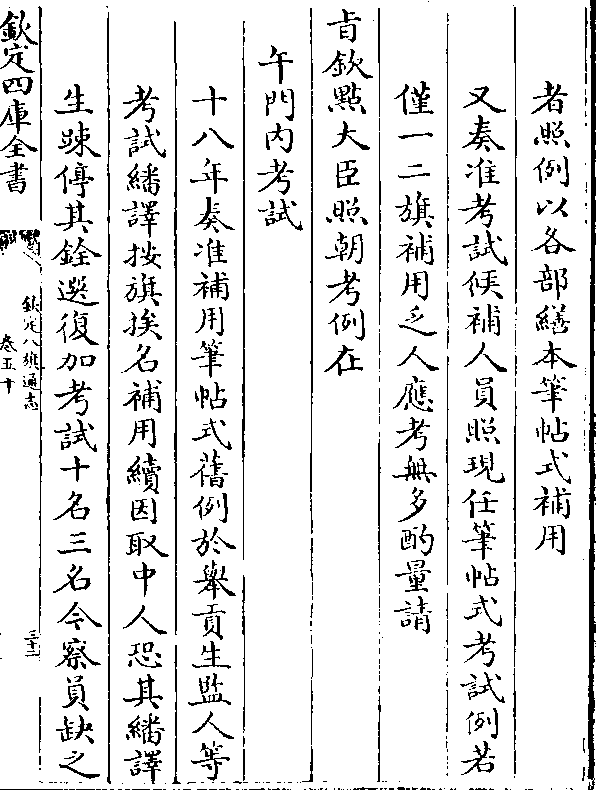 者照例以各部繕本筆帖式補用
又奏准考試候補人員照現任筆帖式考試例若
僅一二旗補用乏人應考無多酌量請
旨欽點大臣照朝考例在
午門内考試
十八年奏准補用筆帖式舊例於舉貢生監人等
考試繙譯按旗挨名補用續因取中人恐其繙譯
生踈停其銓選復加考試十名三名今察員缺之
欽定四庫全書
欽定八旗通志
卷五十
三十二